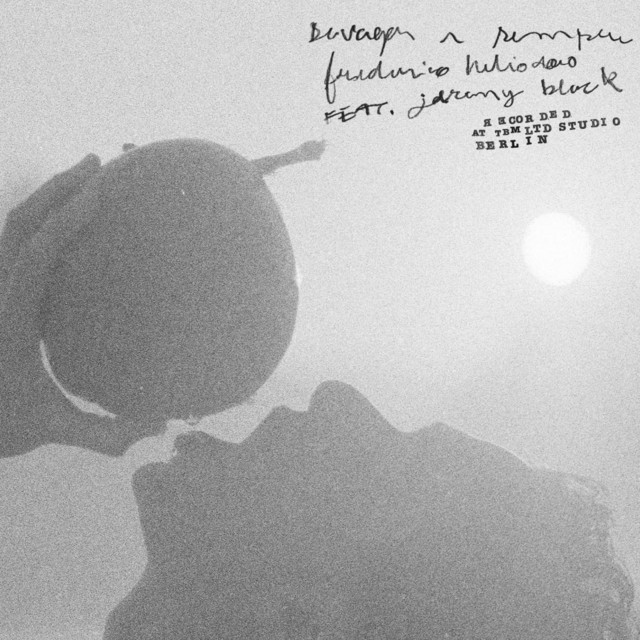 Devagar e sempre
frederico heliodoro
FEAT. jeremy black
RECORDED
AT TBMLTD STUDIO
BERLIN